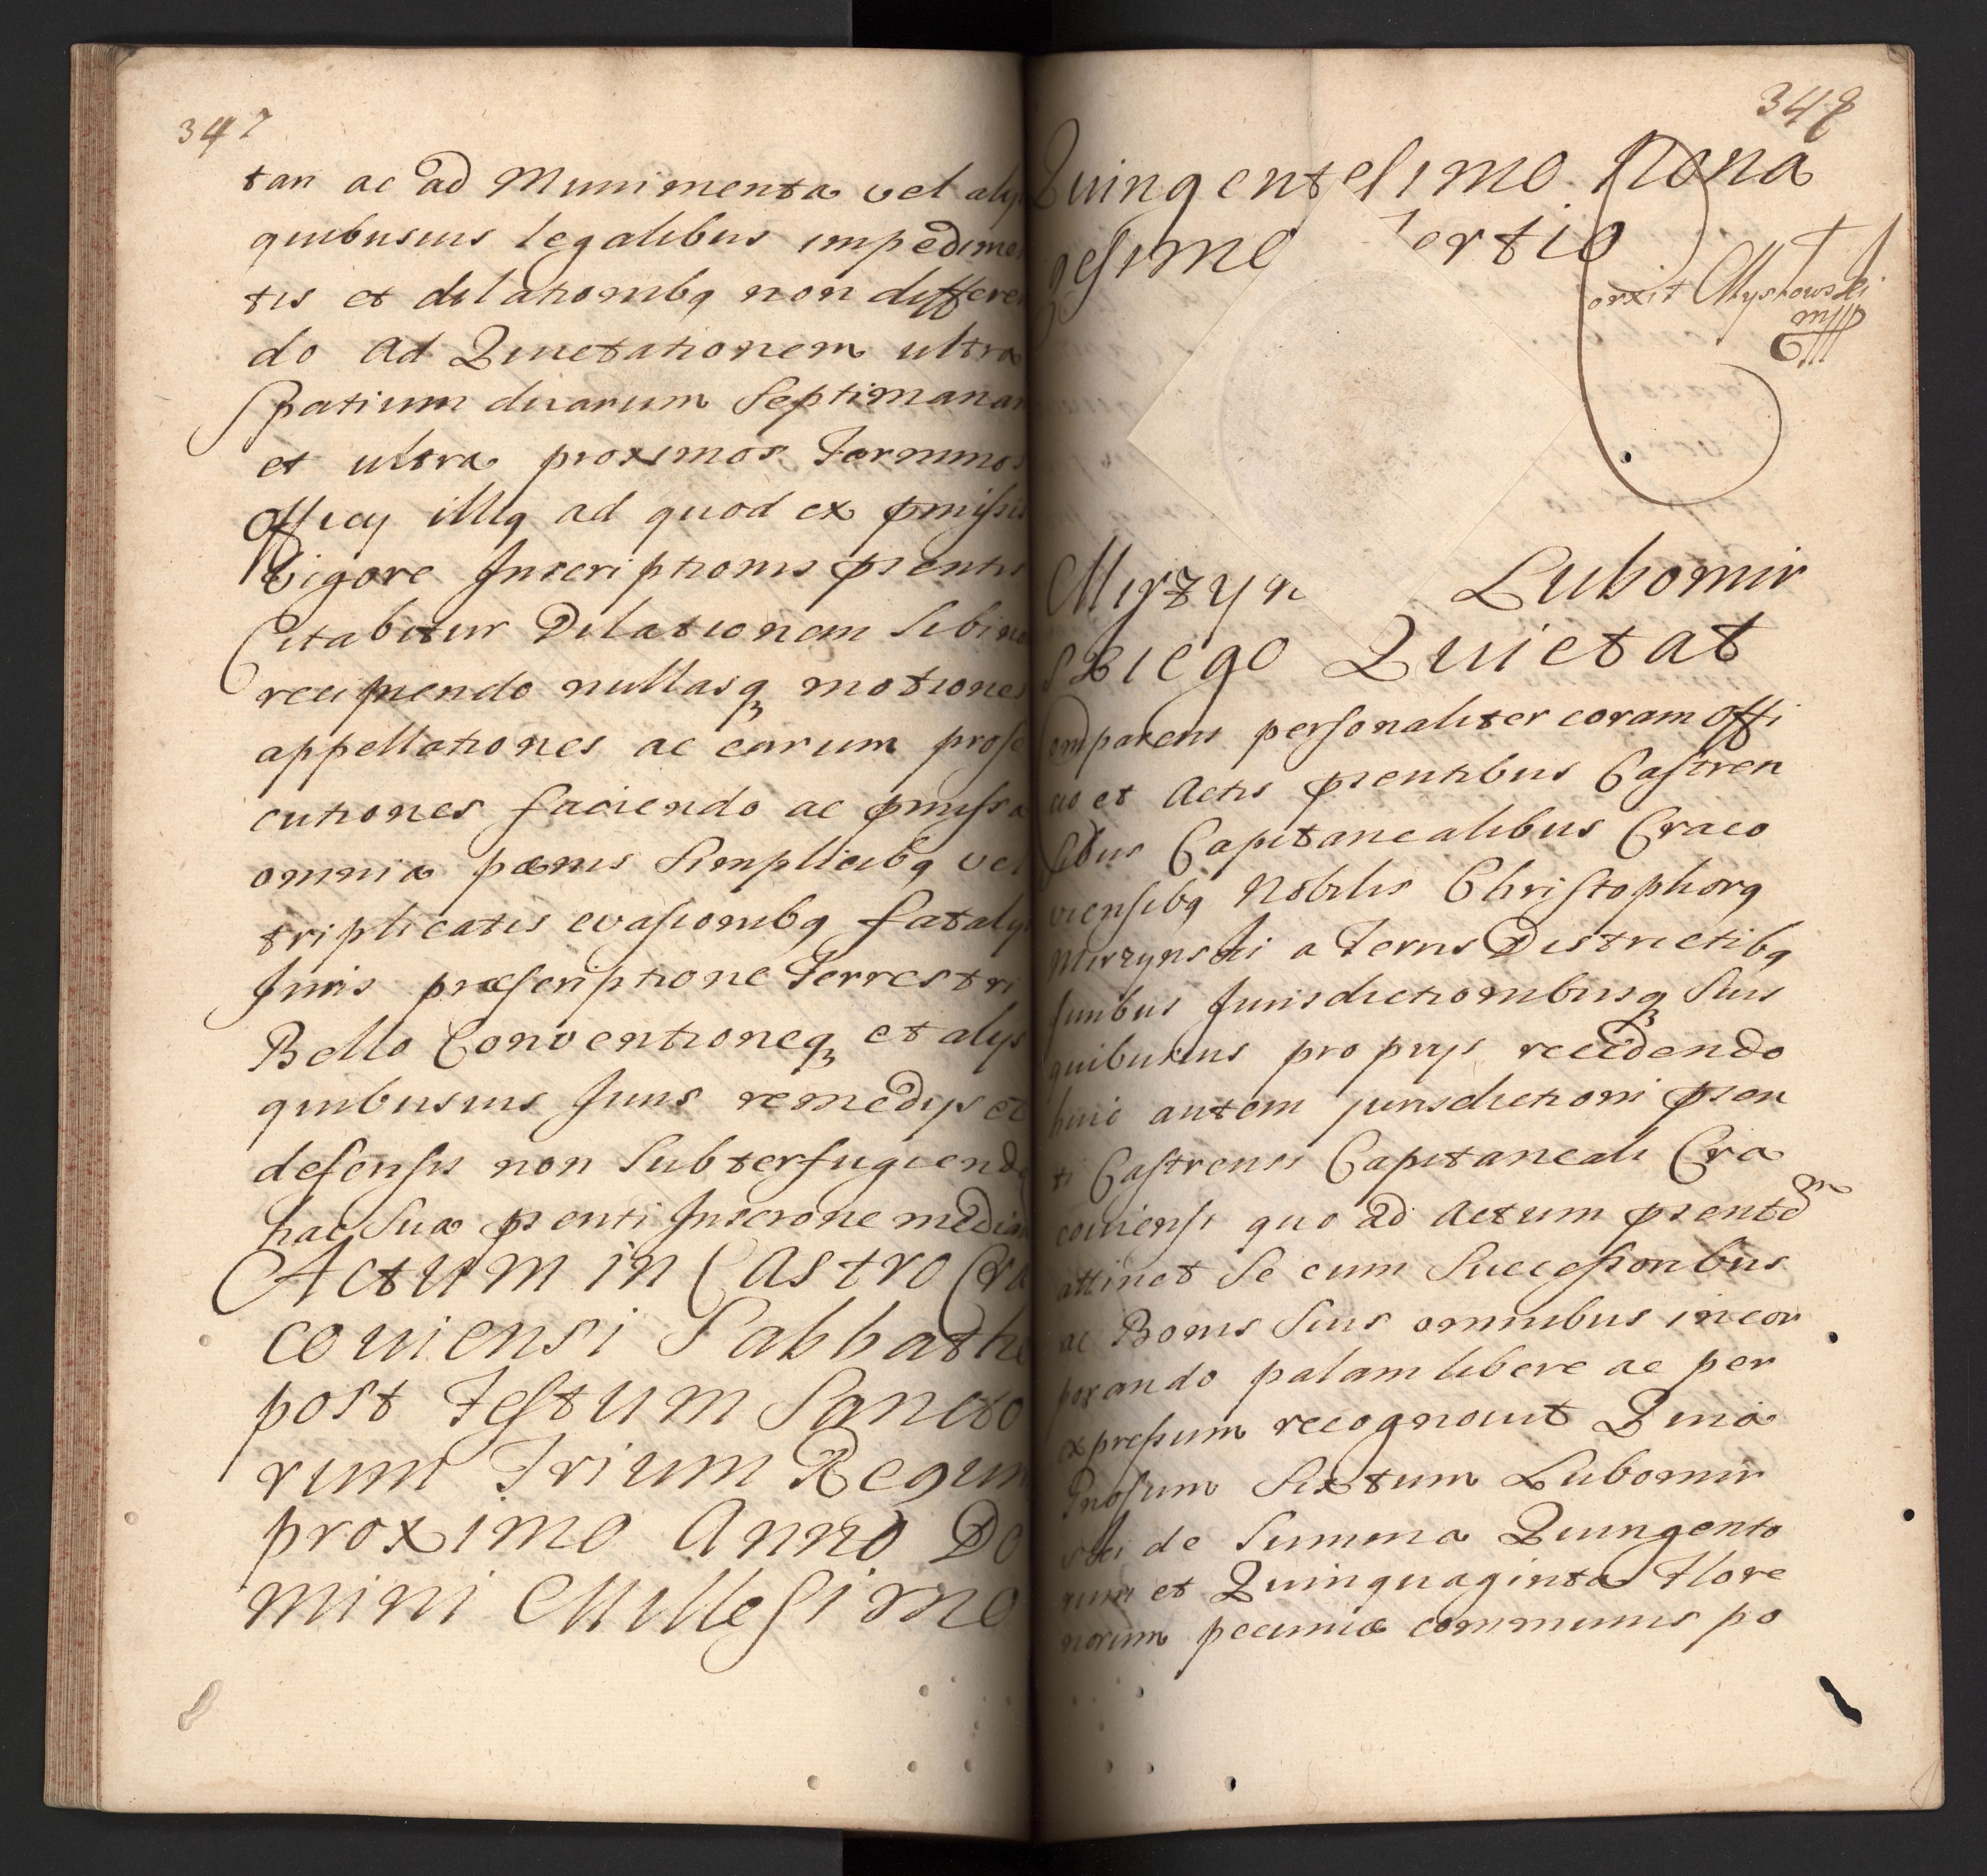 347
tan ac ad Munimenta vel alys
quibusuis legalibus impedime
tis et dilationibq non differe
do ad Quietationem ultra
Spatium duarum Septimanar
et ultra proximos Terminos
Officy illiq ad quod ex pmissis
Vigore Inscriptionis psentis
Citabitur Dilationem Sibi no
recipiendo nullasq motiones
appellationes ac earum prose
cutiones faciendo ac pmissa
omnia pænis Simplicibq vel
triplicatis evasionibq fatalys
Juris præscriptione Terrestri
Bello Conventioneq et alys
quibusuis Juris remedys et
defensis non Subterfugiendo
hac Sua psenti Inscrone median
Actum in Castro Cra
couiensi Sabbatho
post Festum Sancto
rum Trium Regum
proximo Anno Do
mini Millesimo
348
Quingentesimo Nona
gesimo Tertio
orxit Mystowski
mpp
Mirzyn Lubomir
skiego Quietat
Comparens personaliter coram Offi
cio et Actis psentibus Castren
sibus Capitanealibus Craco
viensibq Nobilis Christophorq
Mirzynski a Terris Districtibq
suribus Jurisdictionibusq Suis
quibusuis proprys recedendo
huic autem jurisdictioni psen
ti Castrensi Capitaneali Cra
couiensi quo ad Actum psente
attinet Se cum Successoribus
ac Bonis Suis omnibus incor
porando palam libere ac per
expressum recognouit Quia
Gnosum Sixtum Lubomir
ski de Summa Quingento
rum et Quinquaginta Flore
norum pecuniæ communis po